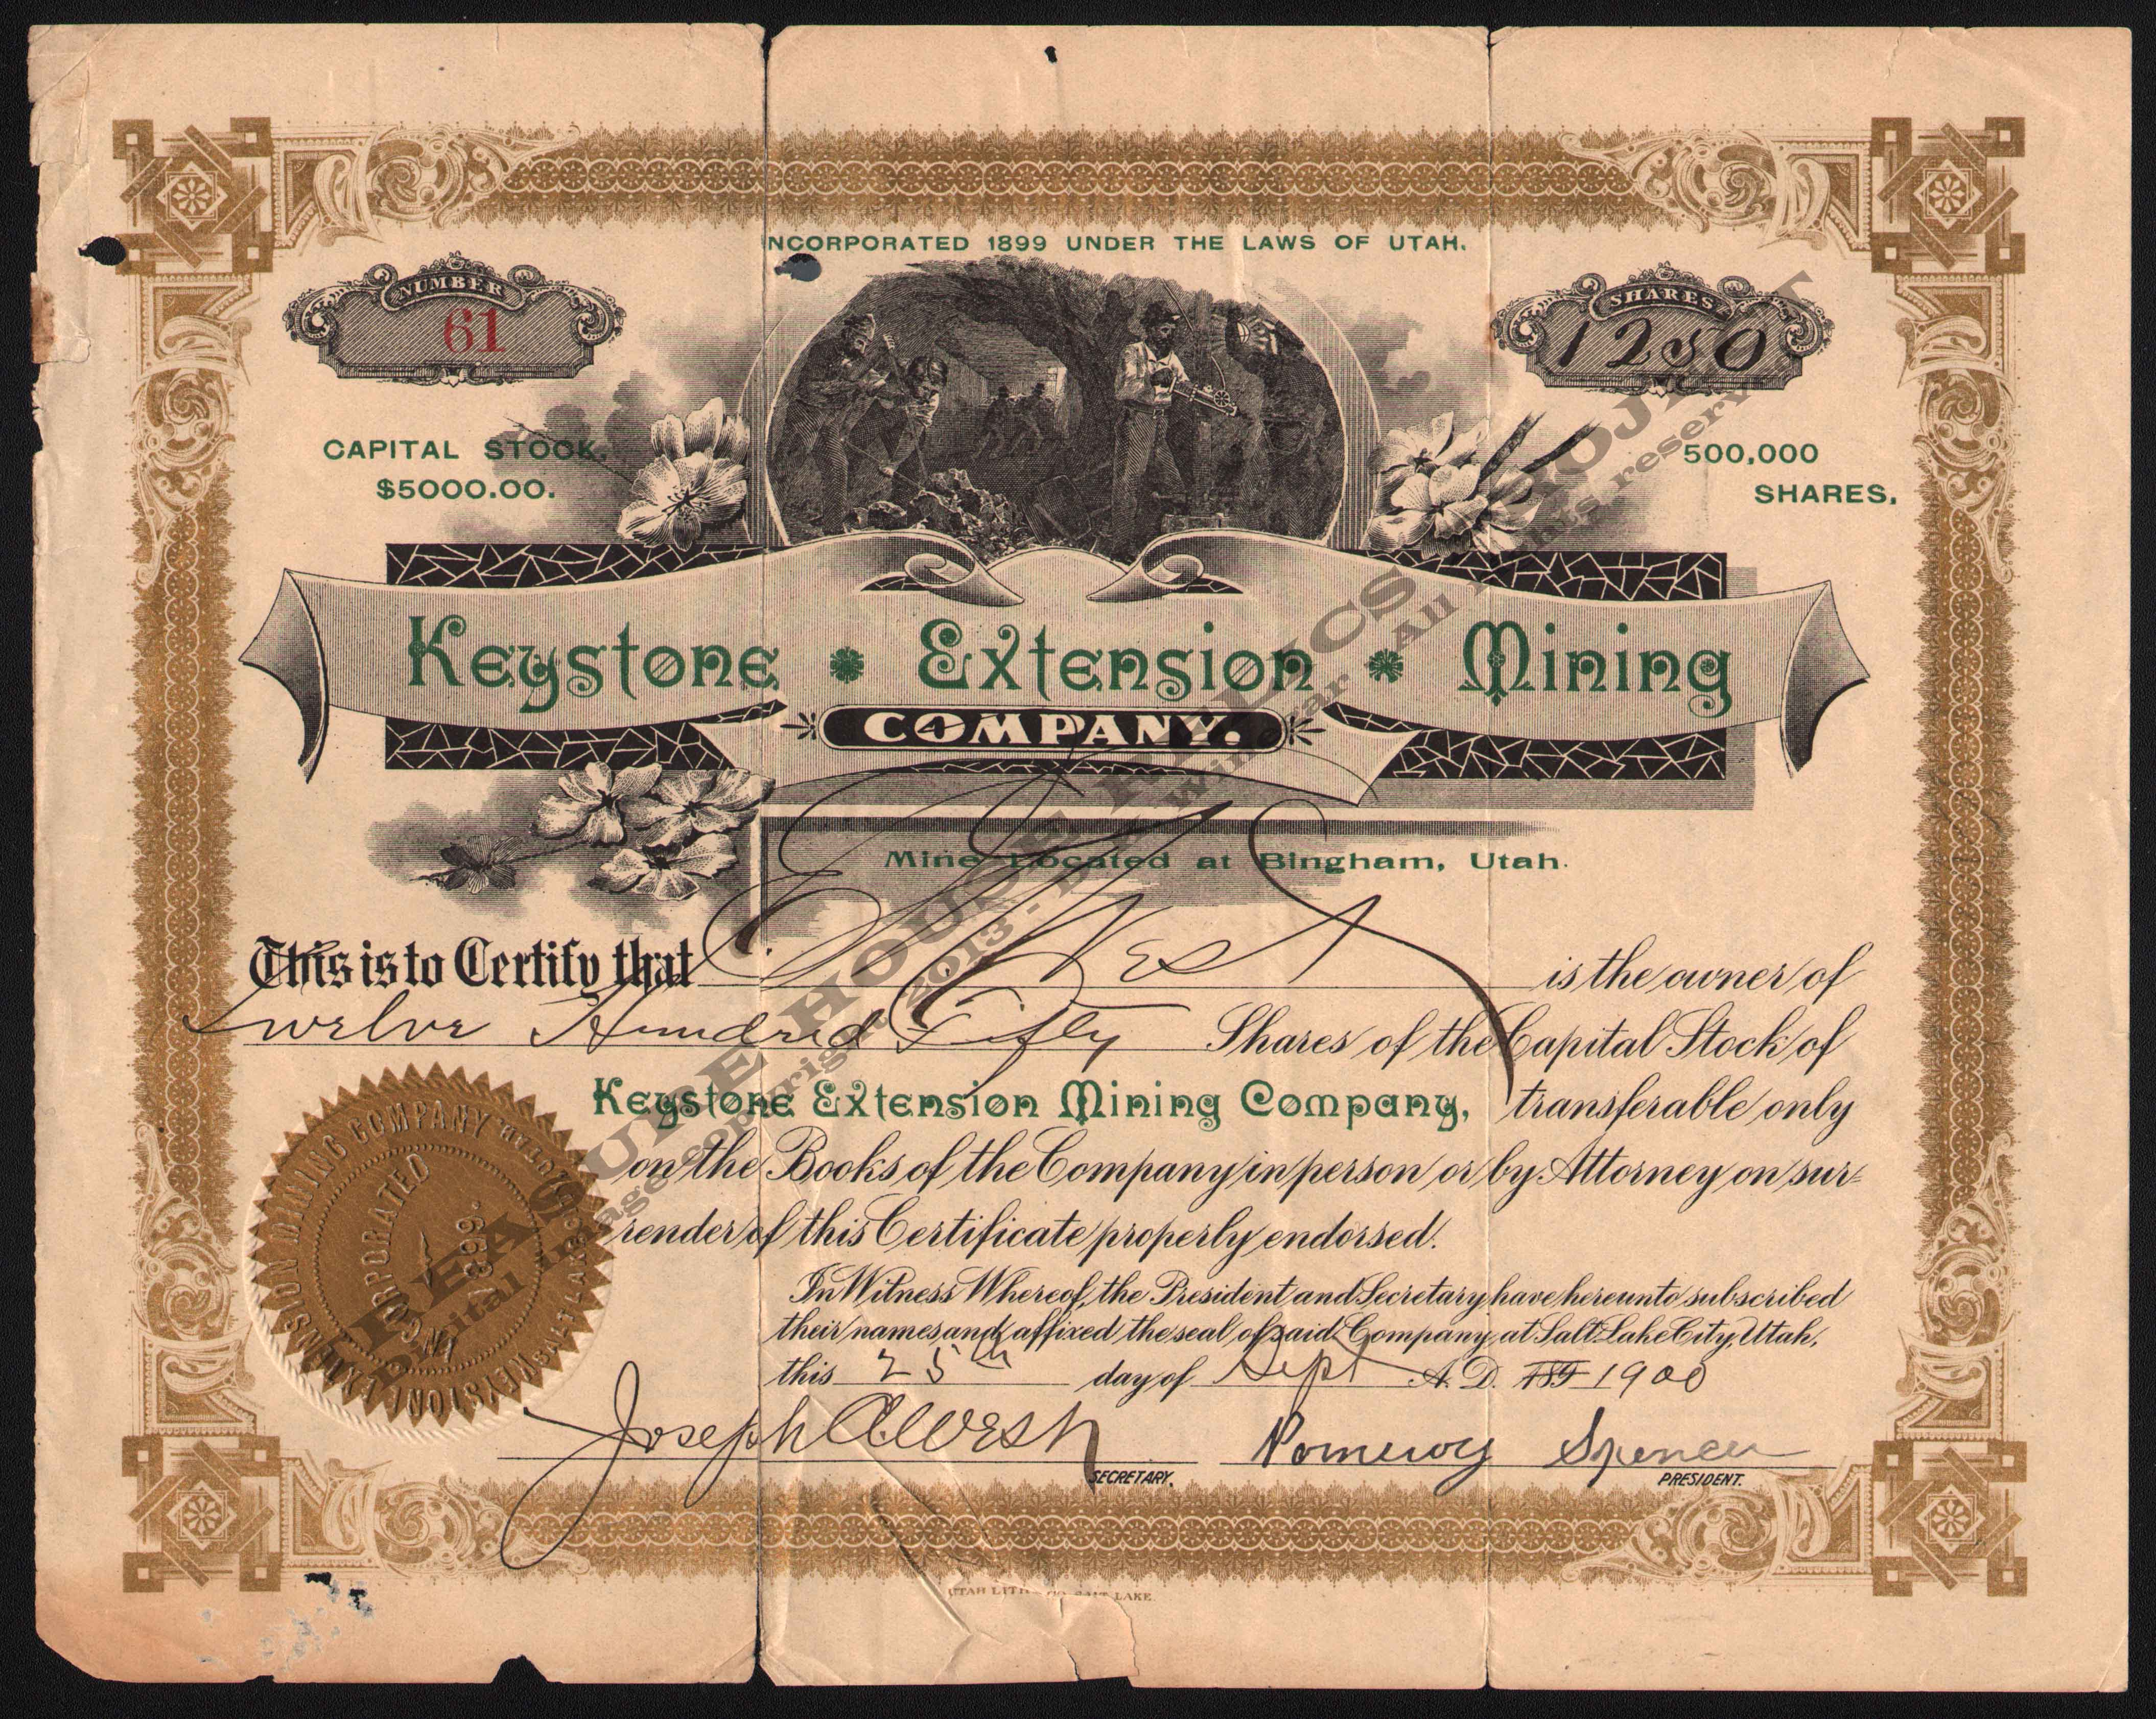 INCORPORATED 1899 UNDER THE LAWS OF UTAH.
NUMBER
61
SHARES
1250
CAPITAL STOCK,
$5000.00.
500,000
SHARES.
Keystone Extension Mining
COMPANY.
Mine Located at Bingham, Utah.
This is to Certify that West is the owner of
Twelve Hundred Fifty Shares of the Capital Stock of
Keystone Extension Mining Company, transferable only
on the Books of the Company in person or by Attorney on sur-
render of this Certificate properly endorsed.
In Witness Whereof, the President and Secretary have hereunto subscribed
their names and affixed the seal of said Company, at Salt Lake City, Utah,
this 25th day of Sept A.D. 189 1900
Joseph A West Pomeroy Spencer
SECRETARY. PRESIDENT.
KEYSTONE EXTENSION MINING COMPANY
SALT LAKE
INCORPORATED
1899.
UTAH LITHO CO. SALT LAKE
TREASURE HOUSE RELICS PROJECT
Digital Image Copyright 2013 - All rights reserved